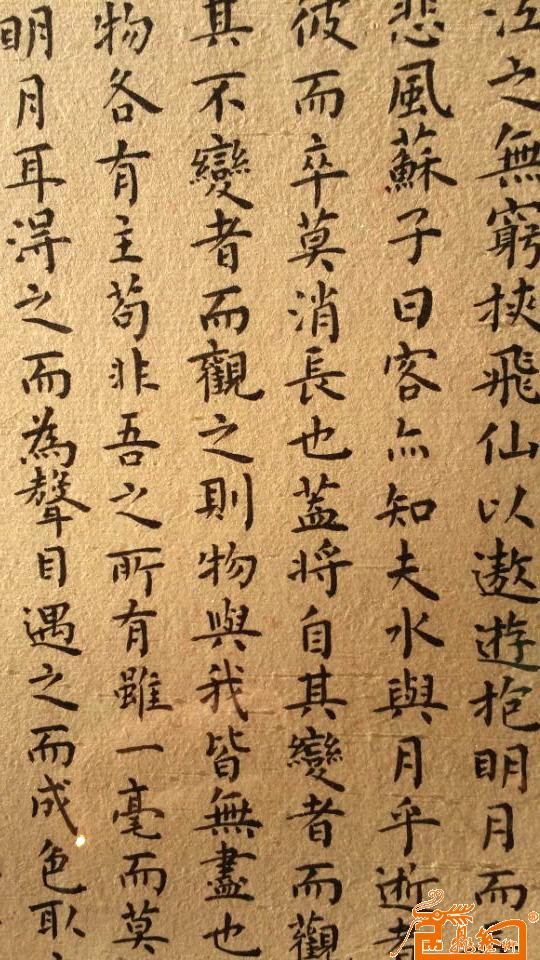 江之無窮挾飛仙以遨遊抱明月而
悲風蘇子曰客亦知夫水與月乎逝者
彼而卒莫消長也蓋将自其變者而觀
其不變者而觀之則物與我皆無盡也
物各有主苟非吾之所有雖一毫而莫
明月耳淂之而為聲目遇之而成色取